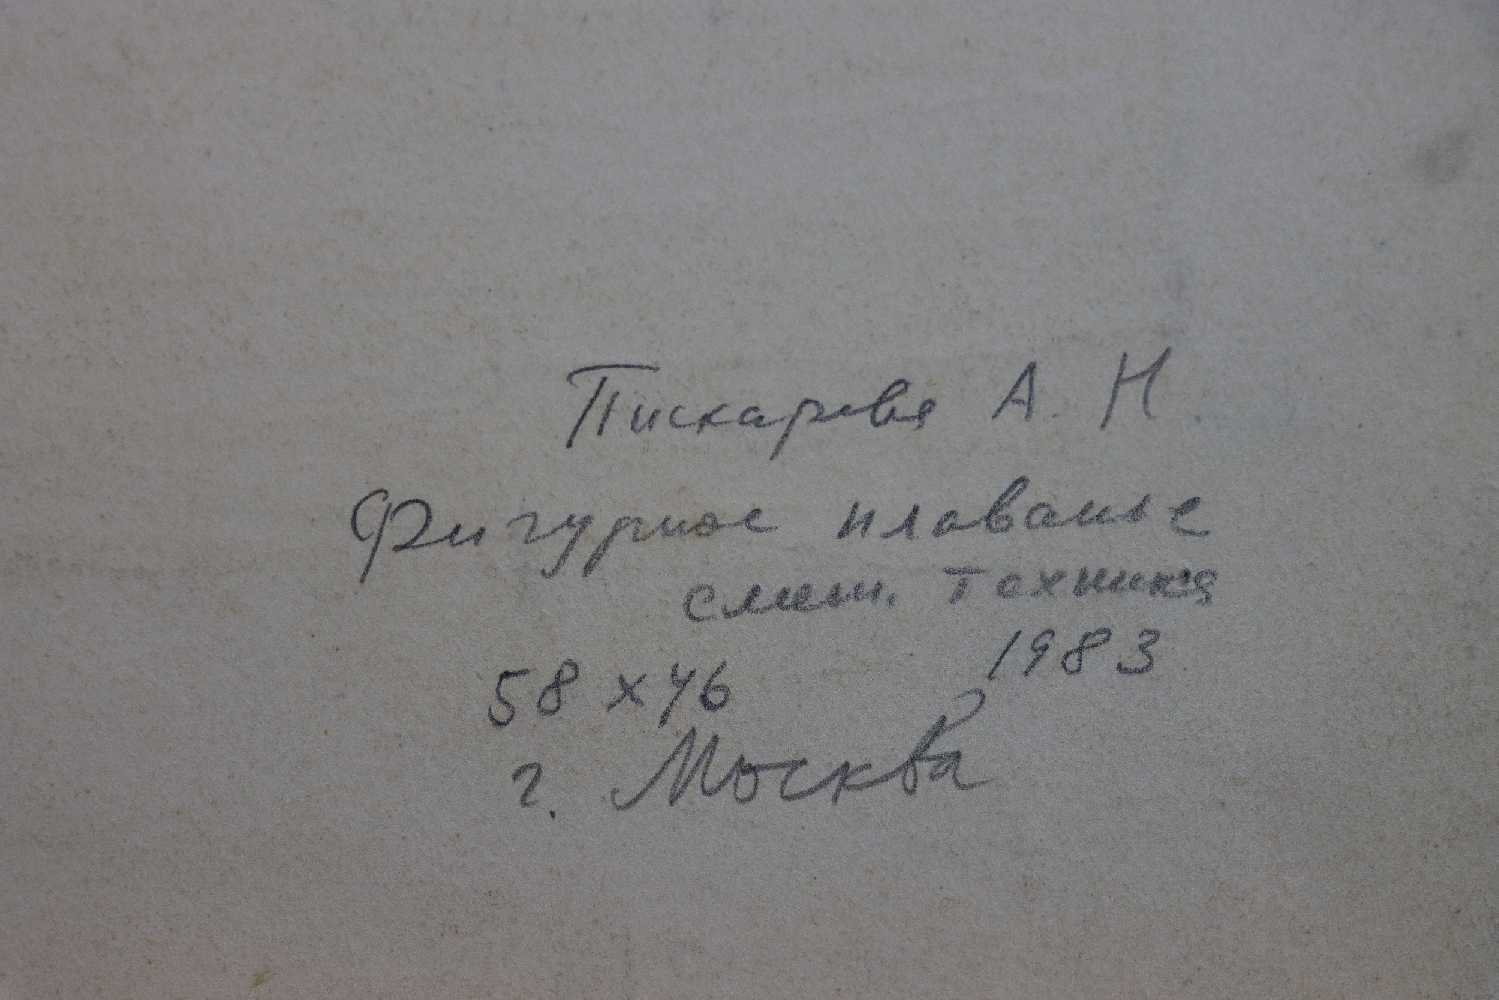 Пискарева А. Н.
Фигурное плаванье
смеш. техника
1983
58 х 46
г. Москва